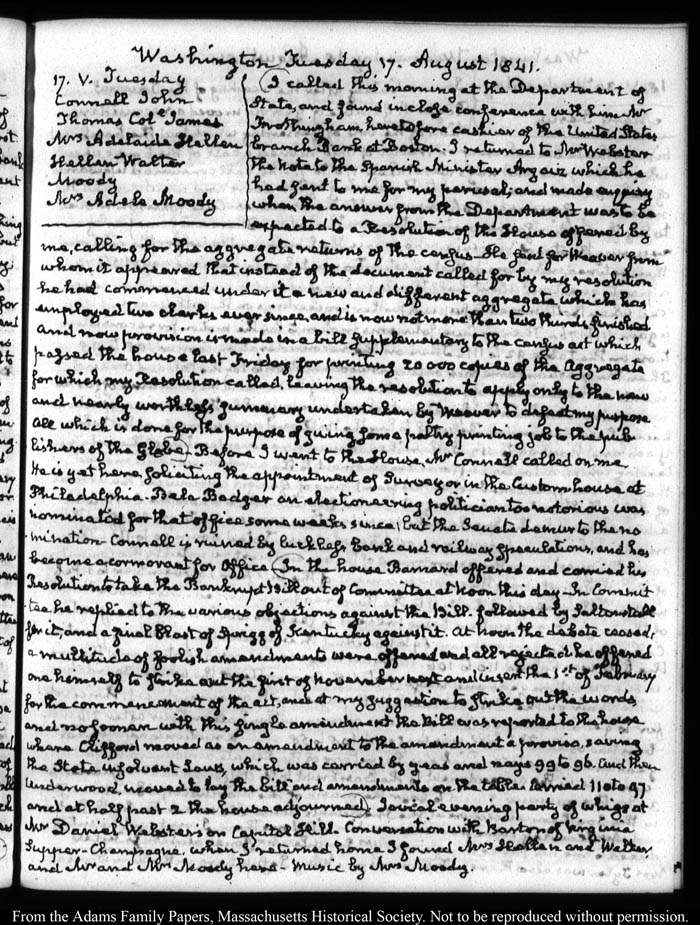 Washington Tuesday 17. August 1841.
17. V. Tuesday
Connell John
Thomas Col.e James
Mrs Adelaide Hellen
Hellen Walter
Moody
Mrs Adele Moody
I called this morning at the Department of
State, and found in close conference with him Mr
Frothingham, heretofore cashier of the United States
branch Bank at Boston. I returned to Mr Webster
the Note to the Spanish Minister Argaiz which he
had sent to me for my perusal; and made enquiry
when the answer from the Department was to be
expected to a Resolution of the House offered by
me, calling for the aggregate returns of the census. He sent for Weaver from
whom it appeared that instead of the document called for by my resolution
he had commenced under it a new and different aggregate which has
employed two clerks ever since, and is now not more than two thirds finished
and now provision is made in a bill supplementary to the census act which
passed the house last Friday for printing 20000 copies of the Aggregate
for which my Resolution called, leaving the resolution to apply only to the new
and nearly worthless summary undertaken by Weaver to defeat my purpose
All which is done for the purpose of giving some paltry printing job to the pub
lishers of the Globe. Before I went to the House, Mr Connell called on me
He is yet here, soliciting the appointment of Surveyor in the Custom house at
Philadelphia. Bela Badger an electioneering politician too notorious was
nominated for that office some weeks since; but the Senate demur to the no
mination. Connell is ruined by luckless bank and railway speculations, and has
become a cormorant for Office. In the house Barnard offered and carried his
Resolution to take the Bankrupt Bill out of Committee at Noon this day. In Commit
tee he replied to the various objections against the Bill. followed by Saltonstall
for it, and a final blast of Sprigg of Kentucky against it. At Noon the debate ceased;
a multitude of foolish amendments were offered and all rejected. he offered
one himself to strike out the first of November next and insert the 1.st of February
for the commencement of the act, and at my suggestion to strike out the words
and no sooner with this single amendment the bill was reported to the house
where Clifford moved as an amendment to the amendment a proviso, saving
the State insolvent Laws, which was carried by yeas and nays 99 to 96. And then
Underwood moved to lay the bill and amendments on the table: carried 110 to 97
and at half past 2 the house adjourned. Jovical evening party of whigs at
Mr Daniel Webster's on Capitol Hill. Conversation with Barton of Virginia
Supper-Champagne, when I returned home I found Mrs Hellen and Walter
and Mr and Mrs Moody here - Music by Mrs Moody.
From the Adams Family Papers, Massachusetts Historical Society. Not to be reproduced without permission.